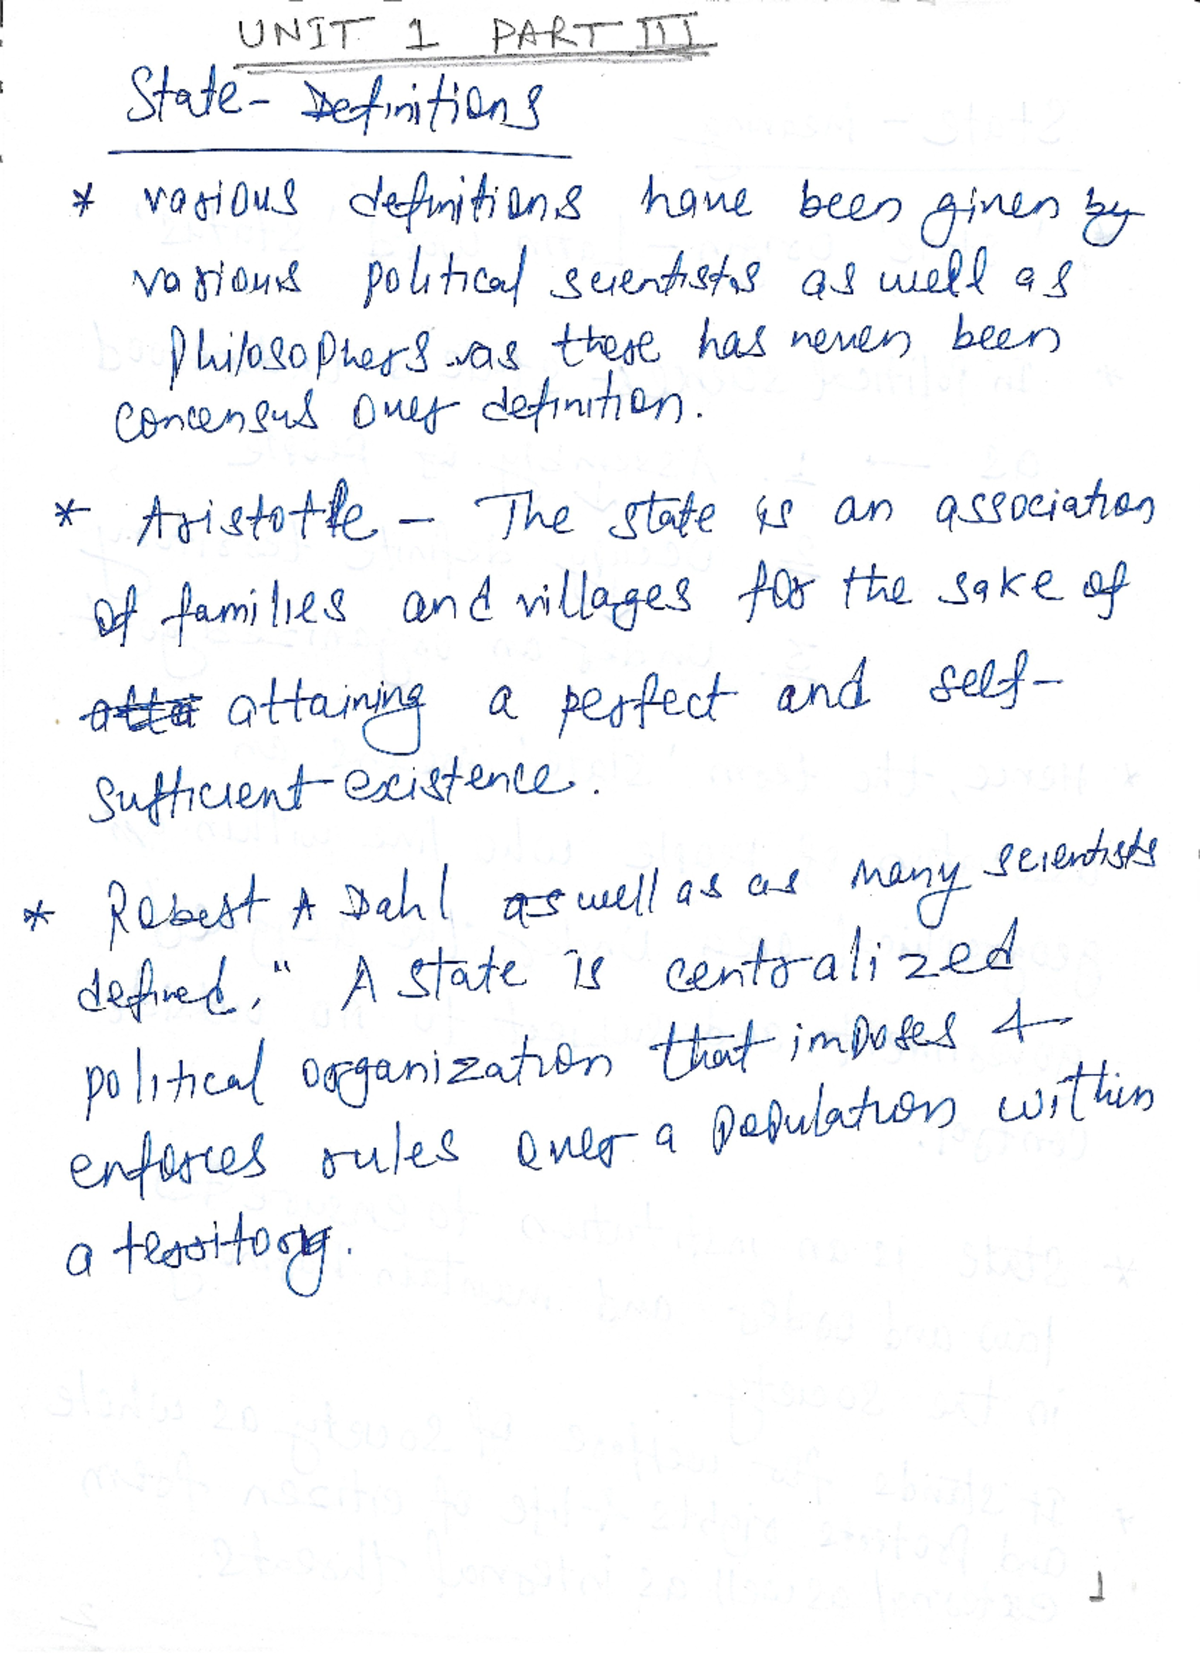 UNIT 1 PART III
State - Definitions
* various definitions have been given by
various political scientists as well as
philosophers as there has never been
concensus over definition.
* Aristotle - The state is an association
of families and villages for the sake of
attaining a perfect and self-
sufficient existence.
* Robert A Dahl as well as as many scientists
defined, " A state is centralized
political organization that imposes &
enforces rules over a population within
a territory.
1